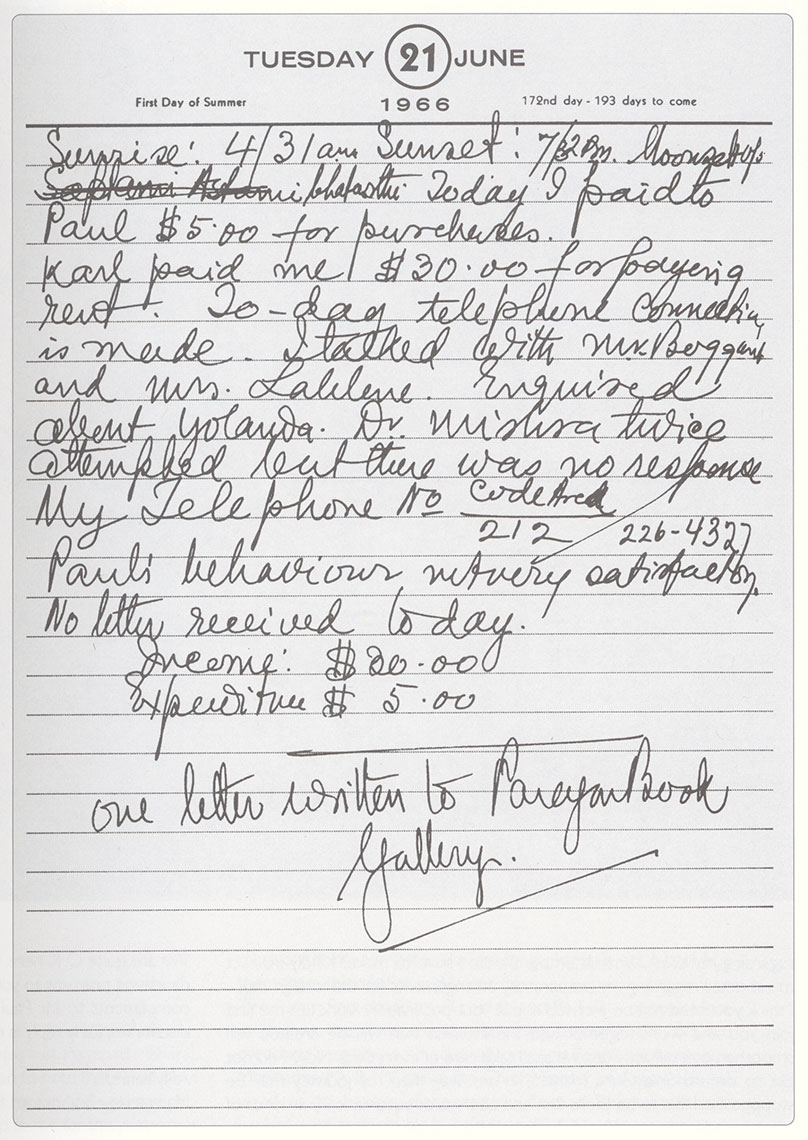 TUESDAY 21 JUNE
First Day of Summer 1966 172nd day - 193 days to come
Sunrise: 4/31am Sunset: 7/32pm.
Today I paid to
Paul $5.00 for purchases.
Karl paid me $30.00 for payering
rent. To-day telephone connection
is made. I talked with Mr. Boggart
and Mrs. Lablene. Enquired
about Yolanda. Dr. Mishra twice
attempted but there was no response
My Telephone No Code Area
212 226-4327
Paul's behaviour very satisfactory.
No letter received to day.
Income: $30.00
Expenditure $ 5.00
one letter written to Paragon Book
Gallery.